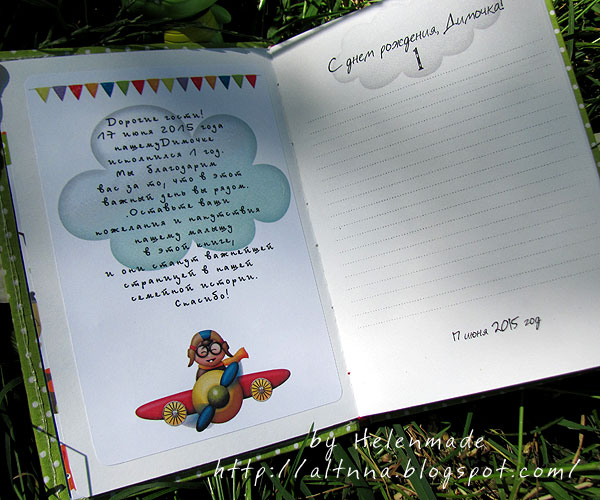 Дорогие гости!
17 июня 2015 года
нашемуДимочке
исполнился 1 год.
Мы благодарим
вас за то, что в этот
важный день вы рядом.
Оставьте ваши
пожелания и напутствия
нашему малышу
в этой книге,
и они станут важнейшей
страницей в нашей
семейной истории.
Спасибо!
С днем рождения, Димочка!
1
17 июня 2015 год
by Helenmade
http://altnna.blogspot.com/